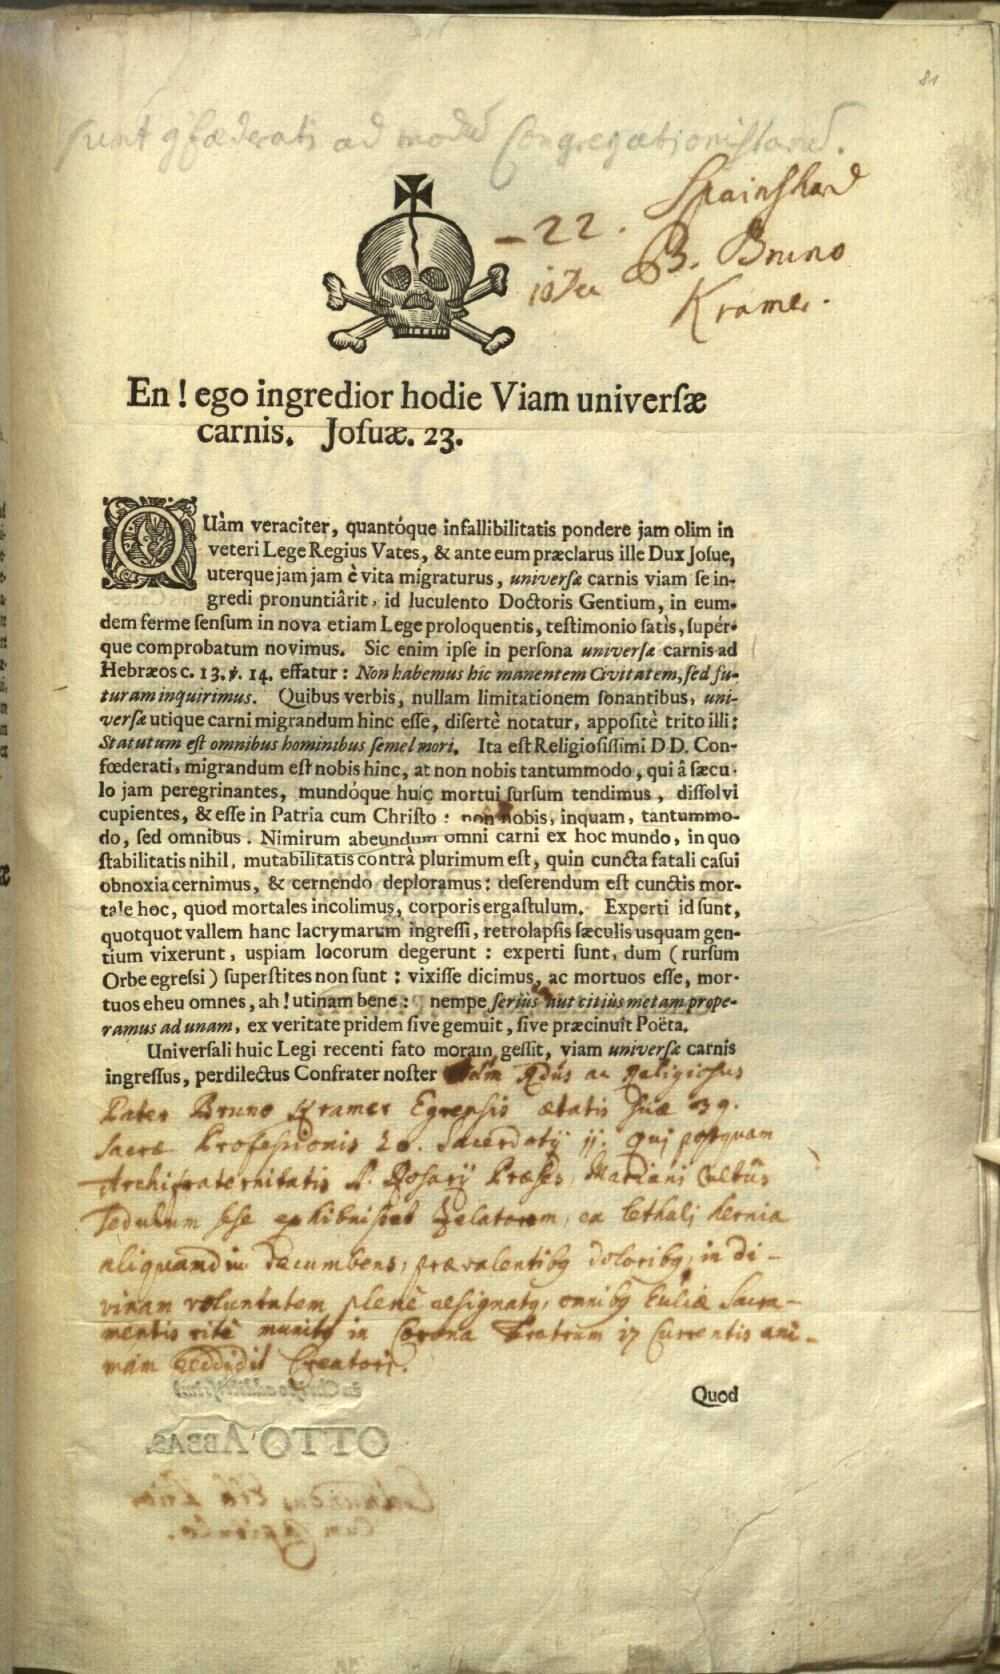 81
sunt gfæderati ad modū Congregationistarū.
Spainshard
- 22. B. Bruno
Kramer.
En! ego ingredior hodie Viam universæ
carnis. Josuæ. 23.
QUàm veraciter, quantóque infallibilitatis pondere jam olim in
veteri Lege Regius Vates, & ante eum præclarus ille Dux Josue,
uterque jam jam è vita migraturus, universæ carnis viam se in-
gredi pronuntiârit, id luculento Doctoris Gentium, in eum-
dem ferme sensum in nova etiam Lege proloquentis, testimonio satìs, supér-
que comprobatum novimus. Sic enim ipse in persona universæ carnis ad
Hebræos c. 13. ℣. 14. effatur: Non habemus hîc manentem Civitatem, sed fu-
turam inquirimus. Quibus verbis, nullam limitationem sonantibus, uni-
versæ utique carni migrandum hinc esse, disertè notatur, appositè trito illi:
Statutum est omnibus hominibus semel mori. Ita est Religiosissimi DD. Con-
fœderati, migrandum est nobis hinc, at non nobis tantummodo, qui â sæcu-
lo jam peregrinantes, mundóque huic mortui sursum tendimus, dissolvi
cupientes, & esse in Patria cum Christo: non nobis, inquam, tantummo-
do, sed omnibus. Nimirum abeundum omni carni ex hoc mundo, in quo
stabilitatis nihil, mutabilitatis contrà plurimum est, quin cuncta fatali casui
obnoxia cernimus, & cernendo deploramus: deserendum est cunctis mor-
tale hoc, quod mortales incolimus, corporis ergastulum. Experti id sunt,
quotquot vallem hanc lacrymarum ingressi, retrolapsis sæculis usquam gen-
tium vixerunt, uspiam locorum degerunt: experti sunt, dum (rursum
Orbe egressi) superstites non sunt: vixisse dicimus, ac mortuos esse, mor-
tuos eheu omnes, ah! utinam bene: nempe seriùs aut citiùs metam prope-
ramus ad unam, ex veritate pridem sive gemuit, sive præcinuit Poëta.
Universali huic Legi recenti fato moram gessit, viam universæ carnis
ingressus, perdilectus Confrater noster Adm Rdūs ac Religiosus
Pater Bruno Kramer Egrensis ætatis suæ 39.
sacræ Professionis 20. Sacerdotÿ 11. Qui postquam
Archifraternitatis S. Rosarÿ Præses, Mariani Cultūs
sedulum sese exhibuisset Zelatorem, ex lethali hernia
aliquandiu decumbens, prævalentibg doloribg, in di-
vinam voluntatem plenè resignatg, omnibg Eccliæ Sacra-
mentis ritè munitg in Corona Fratrum 17 Currentis ani-
mam reddidit Creatori.
Quod